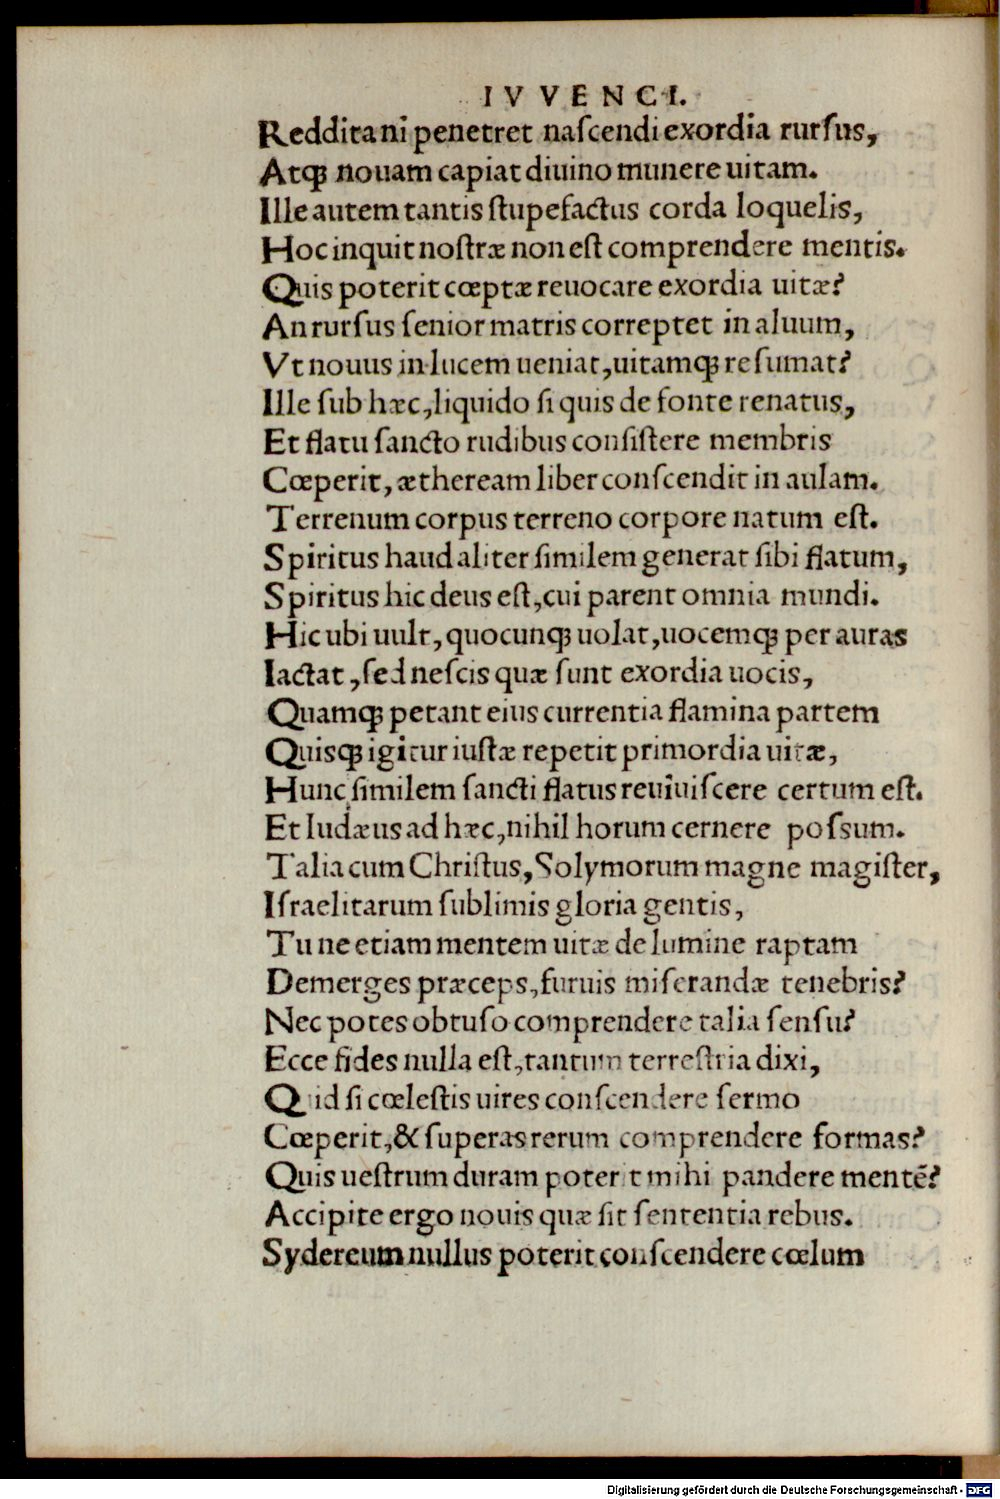 IVVENCI.
Reddita ni penetret naſcendi exordia rurſus,
Atqꝫ nouam capiat diuino munere uitam.
Ille autem tantis ſtupefactus corda loquelis,
Hoc inquit noſtræ non eſt comprendere mentis.
Quis poterit cœptæ reuocare exordia uitæ?
An rurſus ſenior matris correptet in aluum,
Vt nouus in lucem ueniat, uitamqꝫ reſumat?
Ille ſub hæc, liquido ſi quis de fonte renatus,
Et flatu ſancto rudibus conſiſtere membris
Cœperit, ætheream liber conſcendit in aulam.
Terrenum corpus terreno corpore natum eſt.
Spiritus haud aliter ſimilem generat ſibi flatum,
Spiritus hic deus eſt, cui parent omnia mundi.
Hic ubi uult, quocunqꝫ uolat, uocemqꝫ per auras
Iactat, ſed neſcis quæ ſunt exordia uocis,
Quamqꝫ petant eius currentia flamina partem
Quisqꝫ igitur iuſtæ repetit primordia uitæ,
Hunc ſimilem ſancti flatus reuiuiſcere certum eſt.
Et Iudæus ad hæc, nihil horum cernere poſſum.
Talia cum Chriſtus, Solymorum magne magiſter,
Iſraelitarum ſublimis gloria gentis,
Tu ne etiam mentem uitæ de lumine raptam
Demerges præceps, furuis miſerandæ tenebris?
Nec potes obtuſo comprendere talia ſenſu?
Ecce fides nulla eſt, tantum terreſtria dixi,
Quid ſi cœleſtis uires conſcendere ſermo
Cœperit, & ſuperas rerum comprendere formas?
Quis ueſtrum duram poterit mihi pandere mentē?
Accipite ergo nouis quæ ſit ſententia rebus.
Sydereum nullus poterit conſcendere cœlum
Digitalisierung gefördert durch die Deutsche Forschungsgemeinschaft - DFG